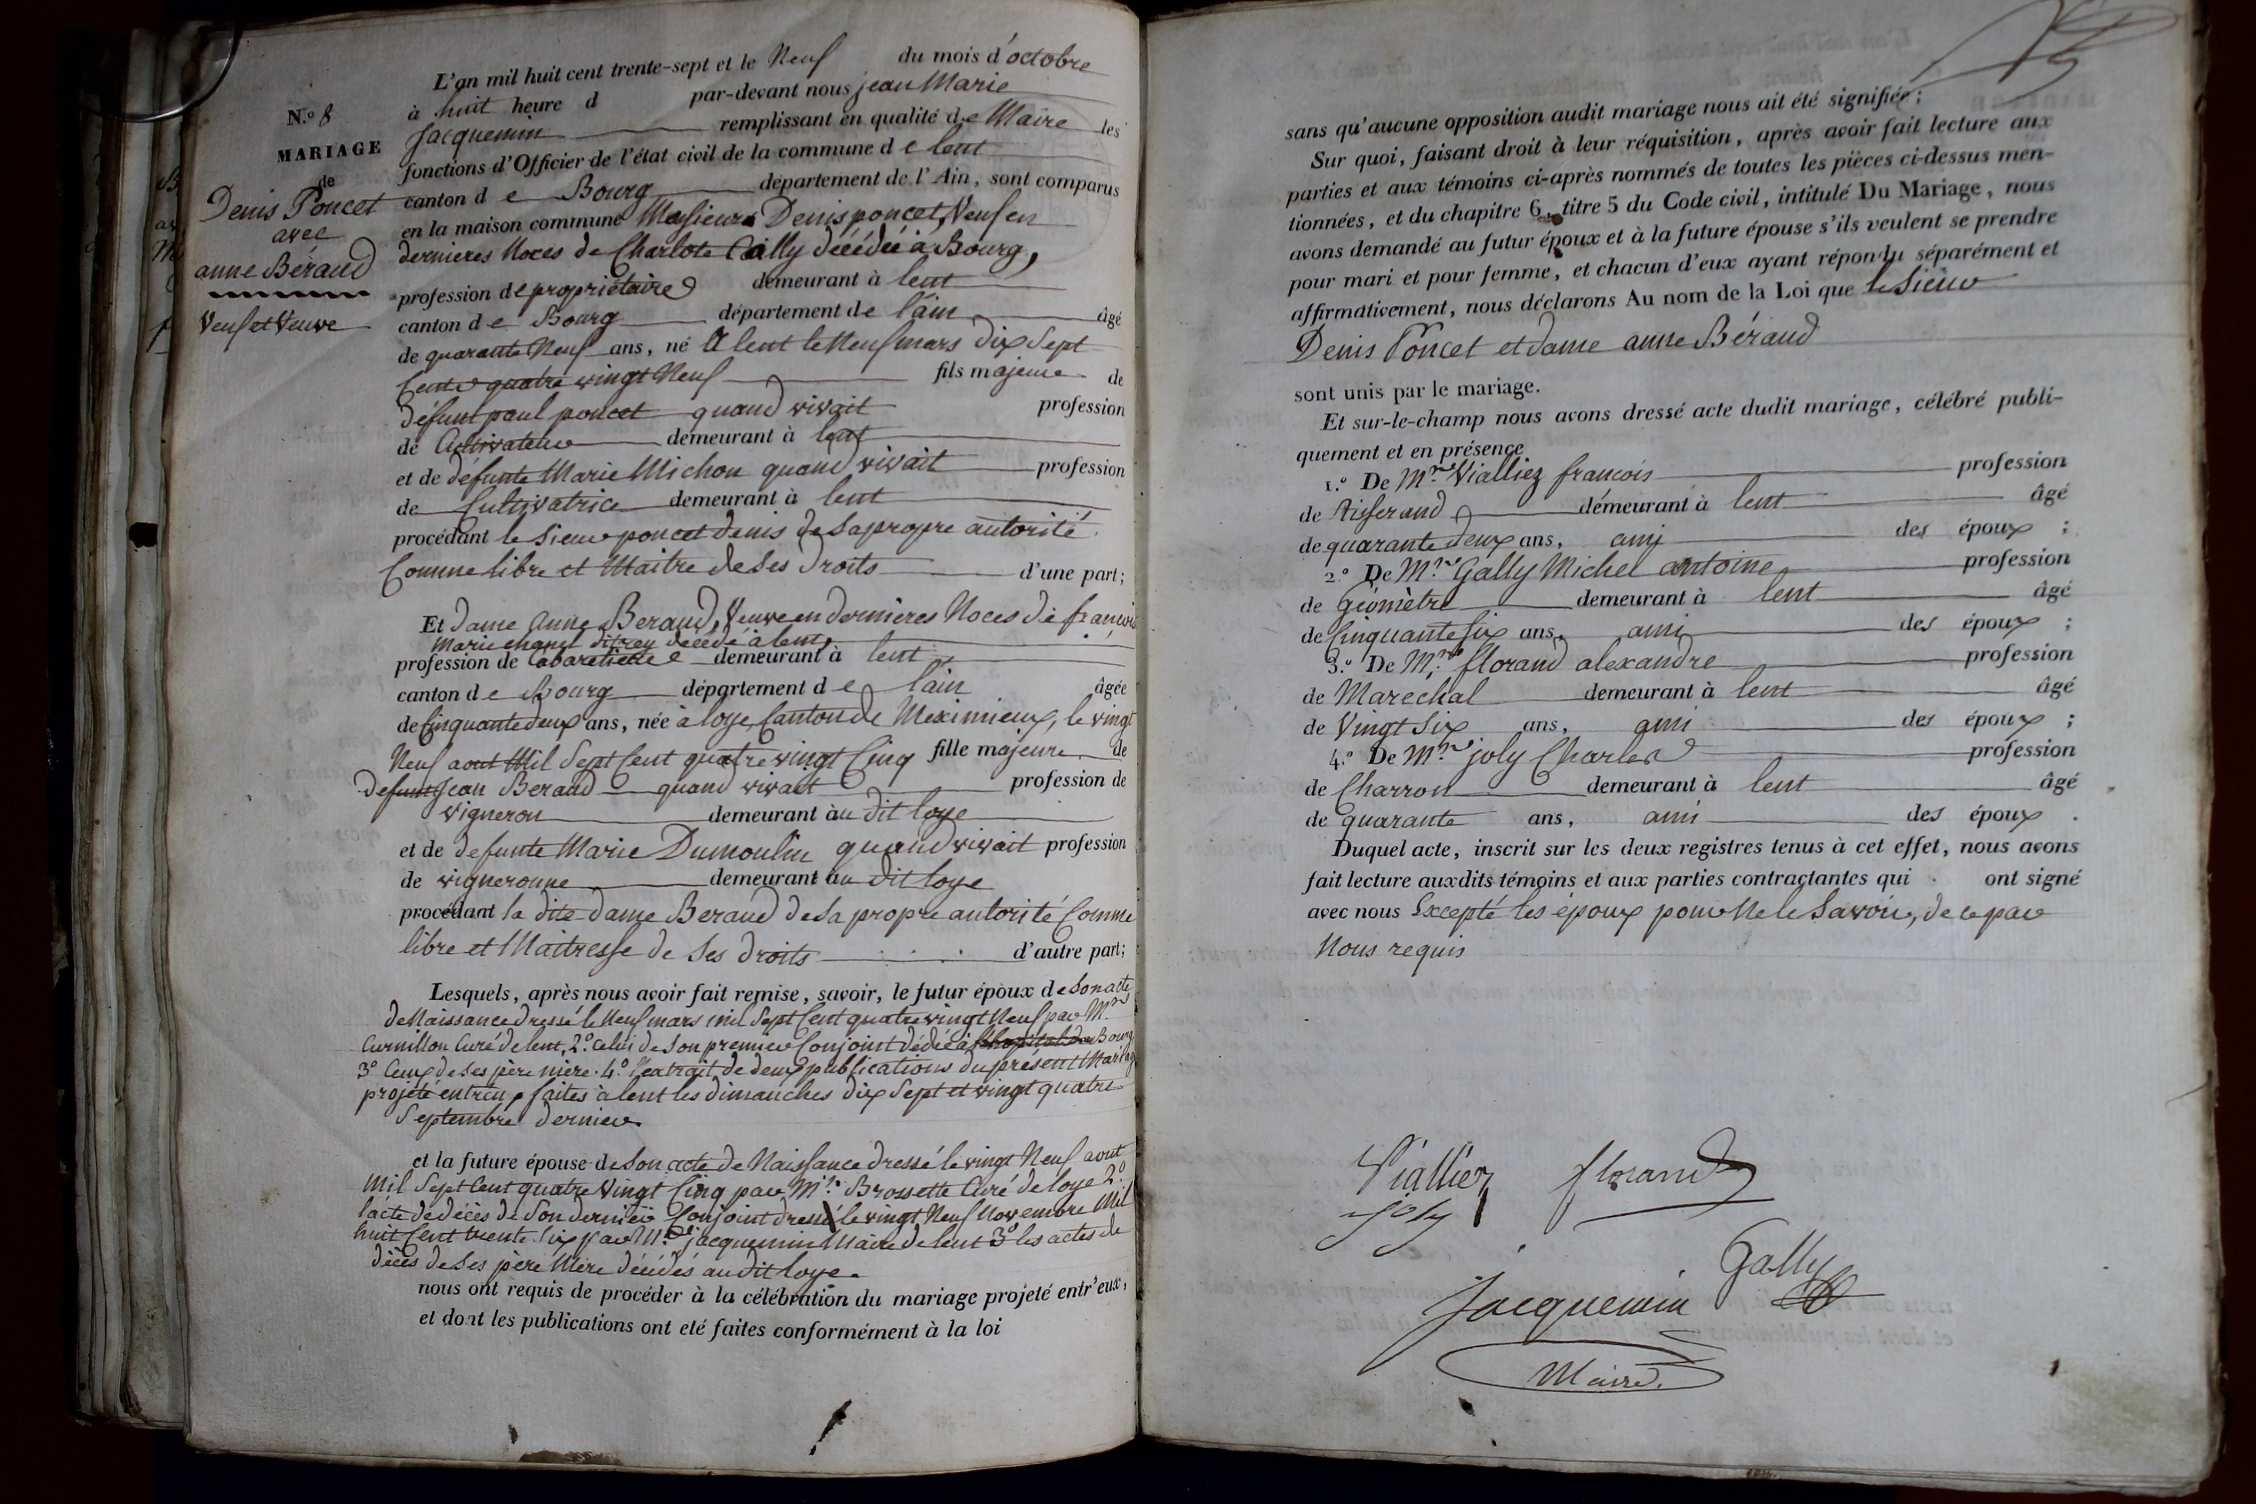 N.o 8
MARIAGE
de
Denis Poncet
avec
anne Béraud
Veuf et Veuve
L'an mil huit cent trente-sept et le Neuf du mois d'octobre
à huit heure d par-devant nous jean Marie
Jacquemin remplissant en qualité de Maire les
fonctions d'Officier de l'état civil de la commune de lent
canton de Bourg département de l'Ain, sont comparus
en la maison commune Denis poncet, Veuf en
dernieres Noces de Charlote Gally décédée à Bourg,
profession de propriétaire demeurant à lent
canton de Bourg département de l'ain âgé
de quarante Neuf ans, né A lent le Neuf mars dix Sept
Cent quatre vingt Neuf fils majeur de
défunt paul poncet quand vivait profession
de Cultivateur demeurant à lent
et de défunte Marie Michon quand vivait profession
de Cultivatrice demeurant à lent
procédant le Sieur poncet denis de Sa propre autorité
Comme libre et Maitre de Ses Droits d'une part;
Et dame anne Beraud, Veuve en dernieres Noces de françois
Marie décédé à lent,
profession de Cabaretiere demeurant à lent
canton de Bourg département de l'ain âgée
de Cinquante deux ans, née à loye, Canton de Meximieux, le vingt
Neuf aout Mil Sept Cent quatre vingt Cinq fille majeure de
defunt Jean Beraud quand vivait profession de
vigneron demeurant au dit loye
et de defunte Marie Dumoulin quand vivait profession
de vigneronne demeurant au dit loye
procédant la dite dame Beraud de Sa propre autorité Comme
libre et Maitresse de Ses droits d'autre part;
Lesquels, après nous avoir fait remise, savoir, le futur époux de Son acte
de Naissance dressé le Neuf mars mil Sept Cent quatre vingt Neuf par Mr.
Curnillon Curé de lent, 2.o celui de Son premier Conjoint décédé à Bourg
3o Ceux de Ses père mère. 4.o l'extrait de deux publications du présent Mariage
projeté entreux faites à lent les dimanches dix Sept et vingt quatre
Septembre dernier
et la future épouse de Son acte de Naissance dressé le vingt Neuf aout
Mil Sept Cent quatre Vingt Cinq par Mr. Brossette Curé de loye 2.o
l'acte de décès de Son dernier Conjoint dressé le vingt Neuf Novembre Mil
huit Cent trente Six par Mr. Jacquemin Maire de lent 3o les actes de
décès de Ses père Mère décédés au dit loye.
nous ont requis de procéder à la célébration du mariage projeté entr'eux,
et dont les publications ont eté faites conformément à la loi
sans qu'aucune opposition audit mariage nous ait été signifiée;
Sur quoi, faisant droit à leur réquisition, après avoir fait lecture aux
parties et aux témoins ci-après nommés de toutes les pièces ci-dessus men-
tionnées, et du chapitre 6, titre 5 du Code civil, intitulé Du Mariage, nous
avons demandé au futur époux et à la future épouse s'ils veulent se prendre
pour mari et pour femme, et chacun d'eux ayant répondu séparément et
affirmativement, nous déclarons Au nom de la Loi que le Sieur
Denis Poncet et dame anne Béraud
sont unis par le mariage.
Et sur-le-champ nous avons dressé acte dudit mariage, célébré publi-
quement et en présence
1.o De Mr. Vialliez francois profession
de Tisserand demeurant à lent âgé
de quarante deux ans, ami des époux ;
2.o De Mr. Gally Michel antoine profession
de Géomètre demeurant à lent âgé
de Cinquante Six ans, ami des époux ;
3.o De Mr. florand alexandre profession
de Marechal demeurant à lent âgé
de Vingt Six ans, ami des époux ;
4.o De Mr. joly Charles profession
de Charron demeurant à lent âgé
de quarante ans, ami des époux .
Duquel acte, inscrit sur les deux registres tenus à cet effet, nous avons
fait lecture auxdits témoins et aux parties contractantes qui ont signé
avec nous Excepté les époux pour Ne le Savoir, de ce par
Nous requis
Viallier florand
joly
Gally
Jacquemin
Maire.